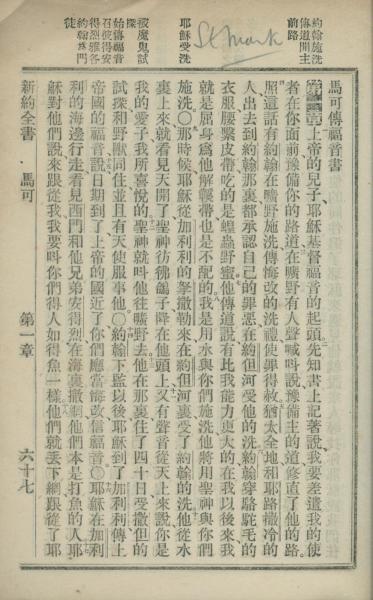 約翰施洗
傳道開主
前路
St Mark
耶穌受洗
被魔鬼試
探
始傳福音
召彼得安
得烈雅各
約翰爲門
徒
馬可傳福音書
第一章上帝的兒子耶穌基督福音的起頭先知書上記著說我要差遣我的使
者在你面前豫備你的路道在曠野有人聲喊叫說豫備主的道修直了他的路
照這話有約翰在曠野施洗傳悔改的洗禮使罪得赦猶太全地和耶路撒冷的
人出去到約翰那裏都承認自己的罪惡在約但河受他的洗約翰穿駱駝毛的
衣服腰繫皮帶吃的是蝗蟲野蜜他傳道說有比我能力更大的在我以後來我
就是屈身爲他解鞋帶也是不配的我是用水與你們施洗他將用聖神與你們
施洗〇那時候耶穌從加利利的拏撒勒來在約但河裏受了約翰的洗他從水
裏上來就看見天開了聖神彷彿鴿子降在他頭上又有聲音從天上來說你是
我的愛子我所喜悅的聖神就叫他往曠野去他在那裏住了四十日受撒但的
試探和野獸同住並且有天使服事他〇約翰下監以後耶穌到了加利利傳上
帝國的福音說日期到了上帝的國近了你們應當悔改信福音〇耶穌在加利
利的海邊行走看見西門和他兄弟安得烈在海裏撒網他們本是打魚的人耶
穌對他們說來跟從我我要叫你們得人如得魚一樣他們就丟下網跟從了耶
新約全書 馬可 第一章 六十七